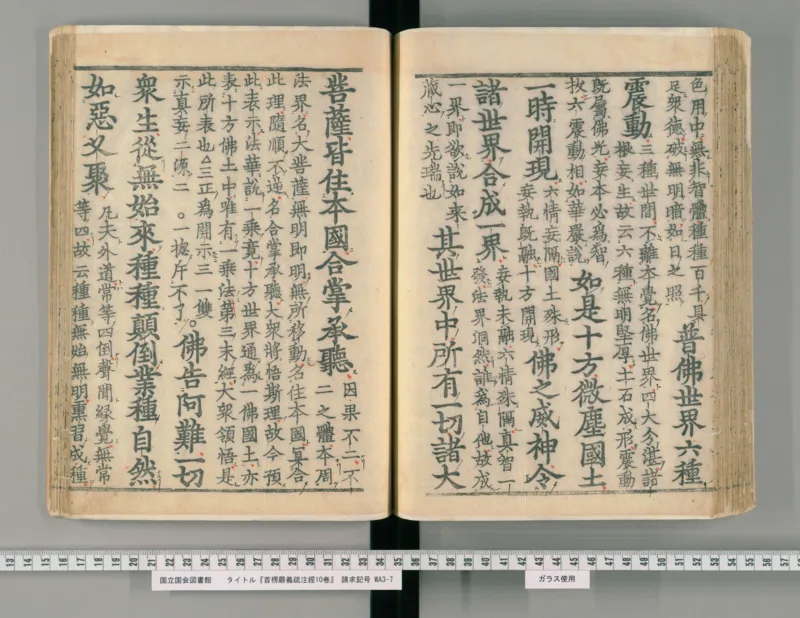 色用中無非智體種種百千具
足衆德破無明暗如日之照
普佛世界六種
震動
三種世間不離本覺名佛世界四大分湛諸
根妄生故云六種無明堅厚土石成形震動
既屬佛光妄本必爲智
六震動相如華嚴說
如是十方微塵國土
一時開現
六情妄隔國土殊形
妄執既融十方開現
佛之威神令
諸世界合成一界
妄執未融六情殊隔真智一
發法界洞然誰爲自他故成
一界即欲說如來
藏心之先瑞也
其世界中所有一切諸大
菩薩皆住本國合掌承聽
因果不二不
二之體本周
法界名大菩薩無明即明無所移動名住本國冥合
此理隨順不逆名合掌承聽大衆將悟斯理故今預
此表示法華說一乘竟十方世界通爲一佛國土亦
表十方佛土中唯有一乘法第三末經大衆領悟是
此所表也△三正爲開示三一雙
示真妄二源二 。一揔斥不了。
佛告阿難一切
衆生從無始來種種顛倒業種自然
如惡叉聚
凡夫外道常等四倒聲聞緣覺無常
等四故云種種無始無明熏習成種
13 14 15 16 17 18 19 20 21 22 23 24 25 26 27 28 29 30 31 32 33 34 35 36 37 38 39 40 41 42 43 44 45 46 47 48 49 50 51 52 53 54 55 56 57
国立国会図書館 タイトル『首楞嚴義疏注經10巻』 請求記号 WA3-7
ガラス使用